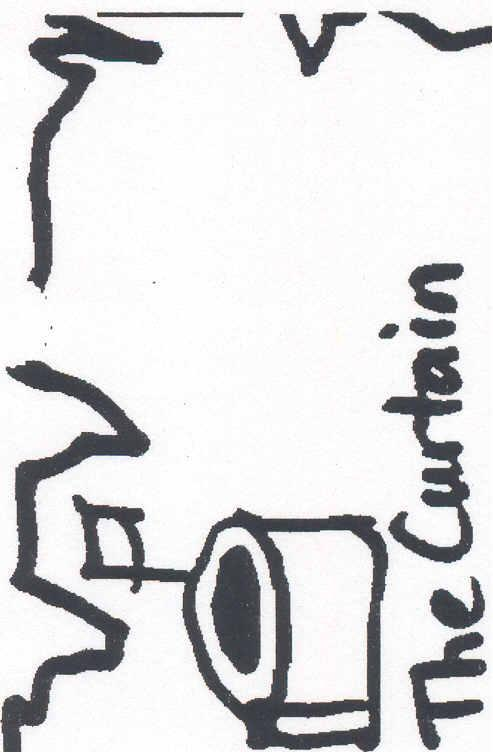 The Curtain